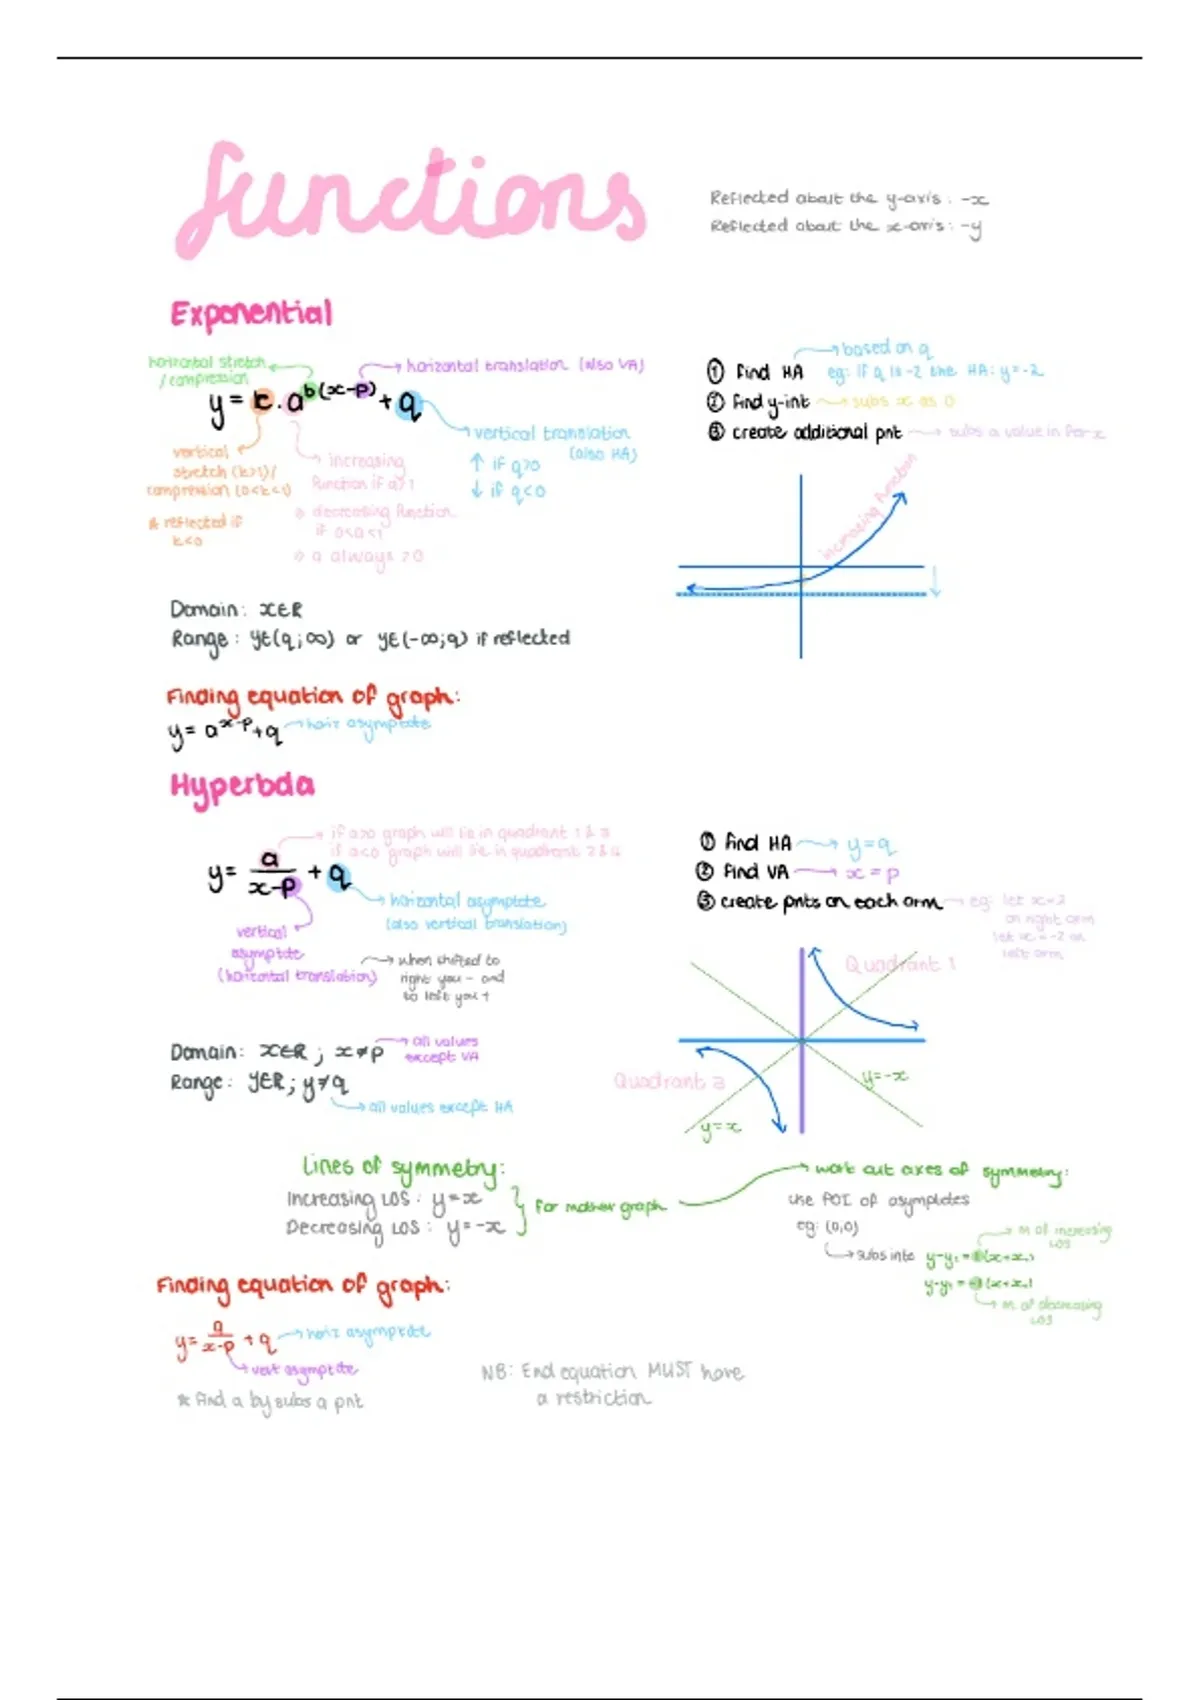 functions
Reflected about the y-axis : -x
Reflected about the x-axis : -y
Exponential
horizontal stretch / compression
horizontal translation (also VA)
y = k . a^b(x-p) + q
vertical stretch (k>1) / compression (0<k<1)
* reflected if k<0
increasing function if a>1
» decreasing function if 0<a<1
» a always >0
vertical translation (also HA)
↑ if q>0
↓ if q<0
① find HA → based on q
eg: if q is -2 the HA: y=-2
② find y-int → subs x as 0
③ create additional pnt → subs a value in for x
increasing function
Domain : x∈R
Range : y∈(q;∞) or y∈(-∞;q) if reflected
Finding equation of graph:
y= a^x-p+q → horiz asymptote
Hyperbola
if a>0 graph will lie in quadrant 1 & 3
if a<0 graph will lie in quadrant 2 & 4
y= a/x-p + q
horizontal asymptote
(also vertical translation)
vertical asymptote
(horizontal translation)
when shifted to
right you - and
to left you +
① find HA → y=q
② find VA → x=p
③ create pnts on each arm → eg: let x=2
on right arm
let x=-2 on
left arm
Quadrant 1
Quadrant 3
y=-x
y=x
Domain: x∈R ; x≠p → all values except VA
Range : y∈R; y≠q
→ all values except HA
Lines of symmetry:
Increasing LOS : y=x
Decreasing LOS : y=-x
for mother graph
→ work out axes of symmetry:
use POI of asymptotes
eg: (0,0)
→ subs into y-y₁ = 1(x+x₁)
y-y₁ = -1(x+x₁)
→ m of increasing LOS
→ m of decreasing LOS
Finding equation of graph:
y= a/x-p + q → horiz asymptote
→ vert asymptote
* find a by subs a pnt
NB: End equation MUST have
a restriction